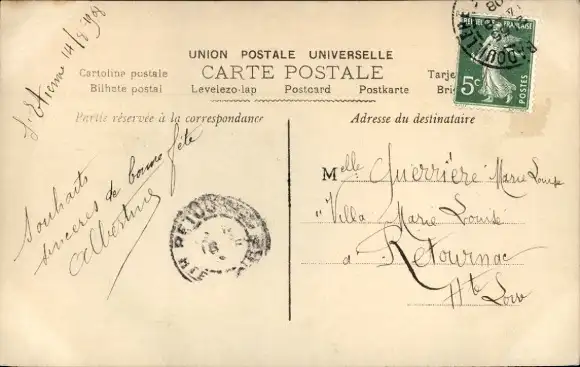 St Etienne 14/8 1908
UNION POSTALE UNIVERSELLE
CARTE POSTALE
Cartolina postale
Bilhete postal
Levelezo-lap
Postcard
Postkarte
Tarje
Bri
REPUBLIQUE FRANÇAISE
5c
POSTES
Partie réservée à la correspondance
Adresse du destinataire
Souhaits
sincères de bonne fête
Albertine
Melle Guerrière Marie Louise
"Villa Marie Louise
à Retournac
Hte Loire